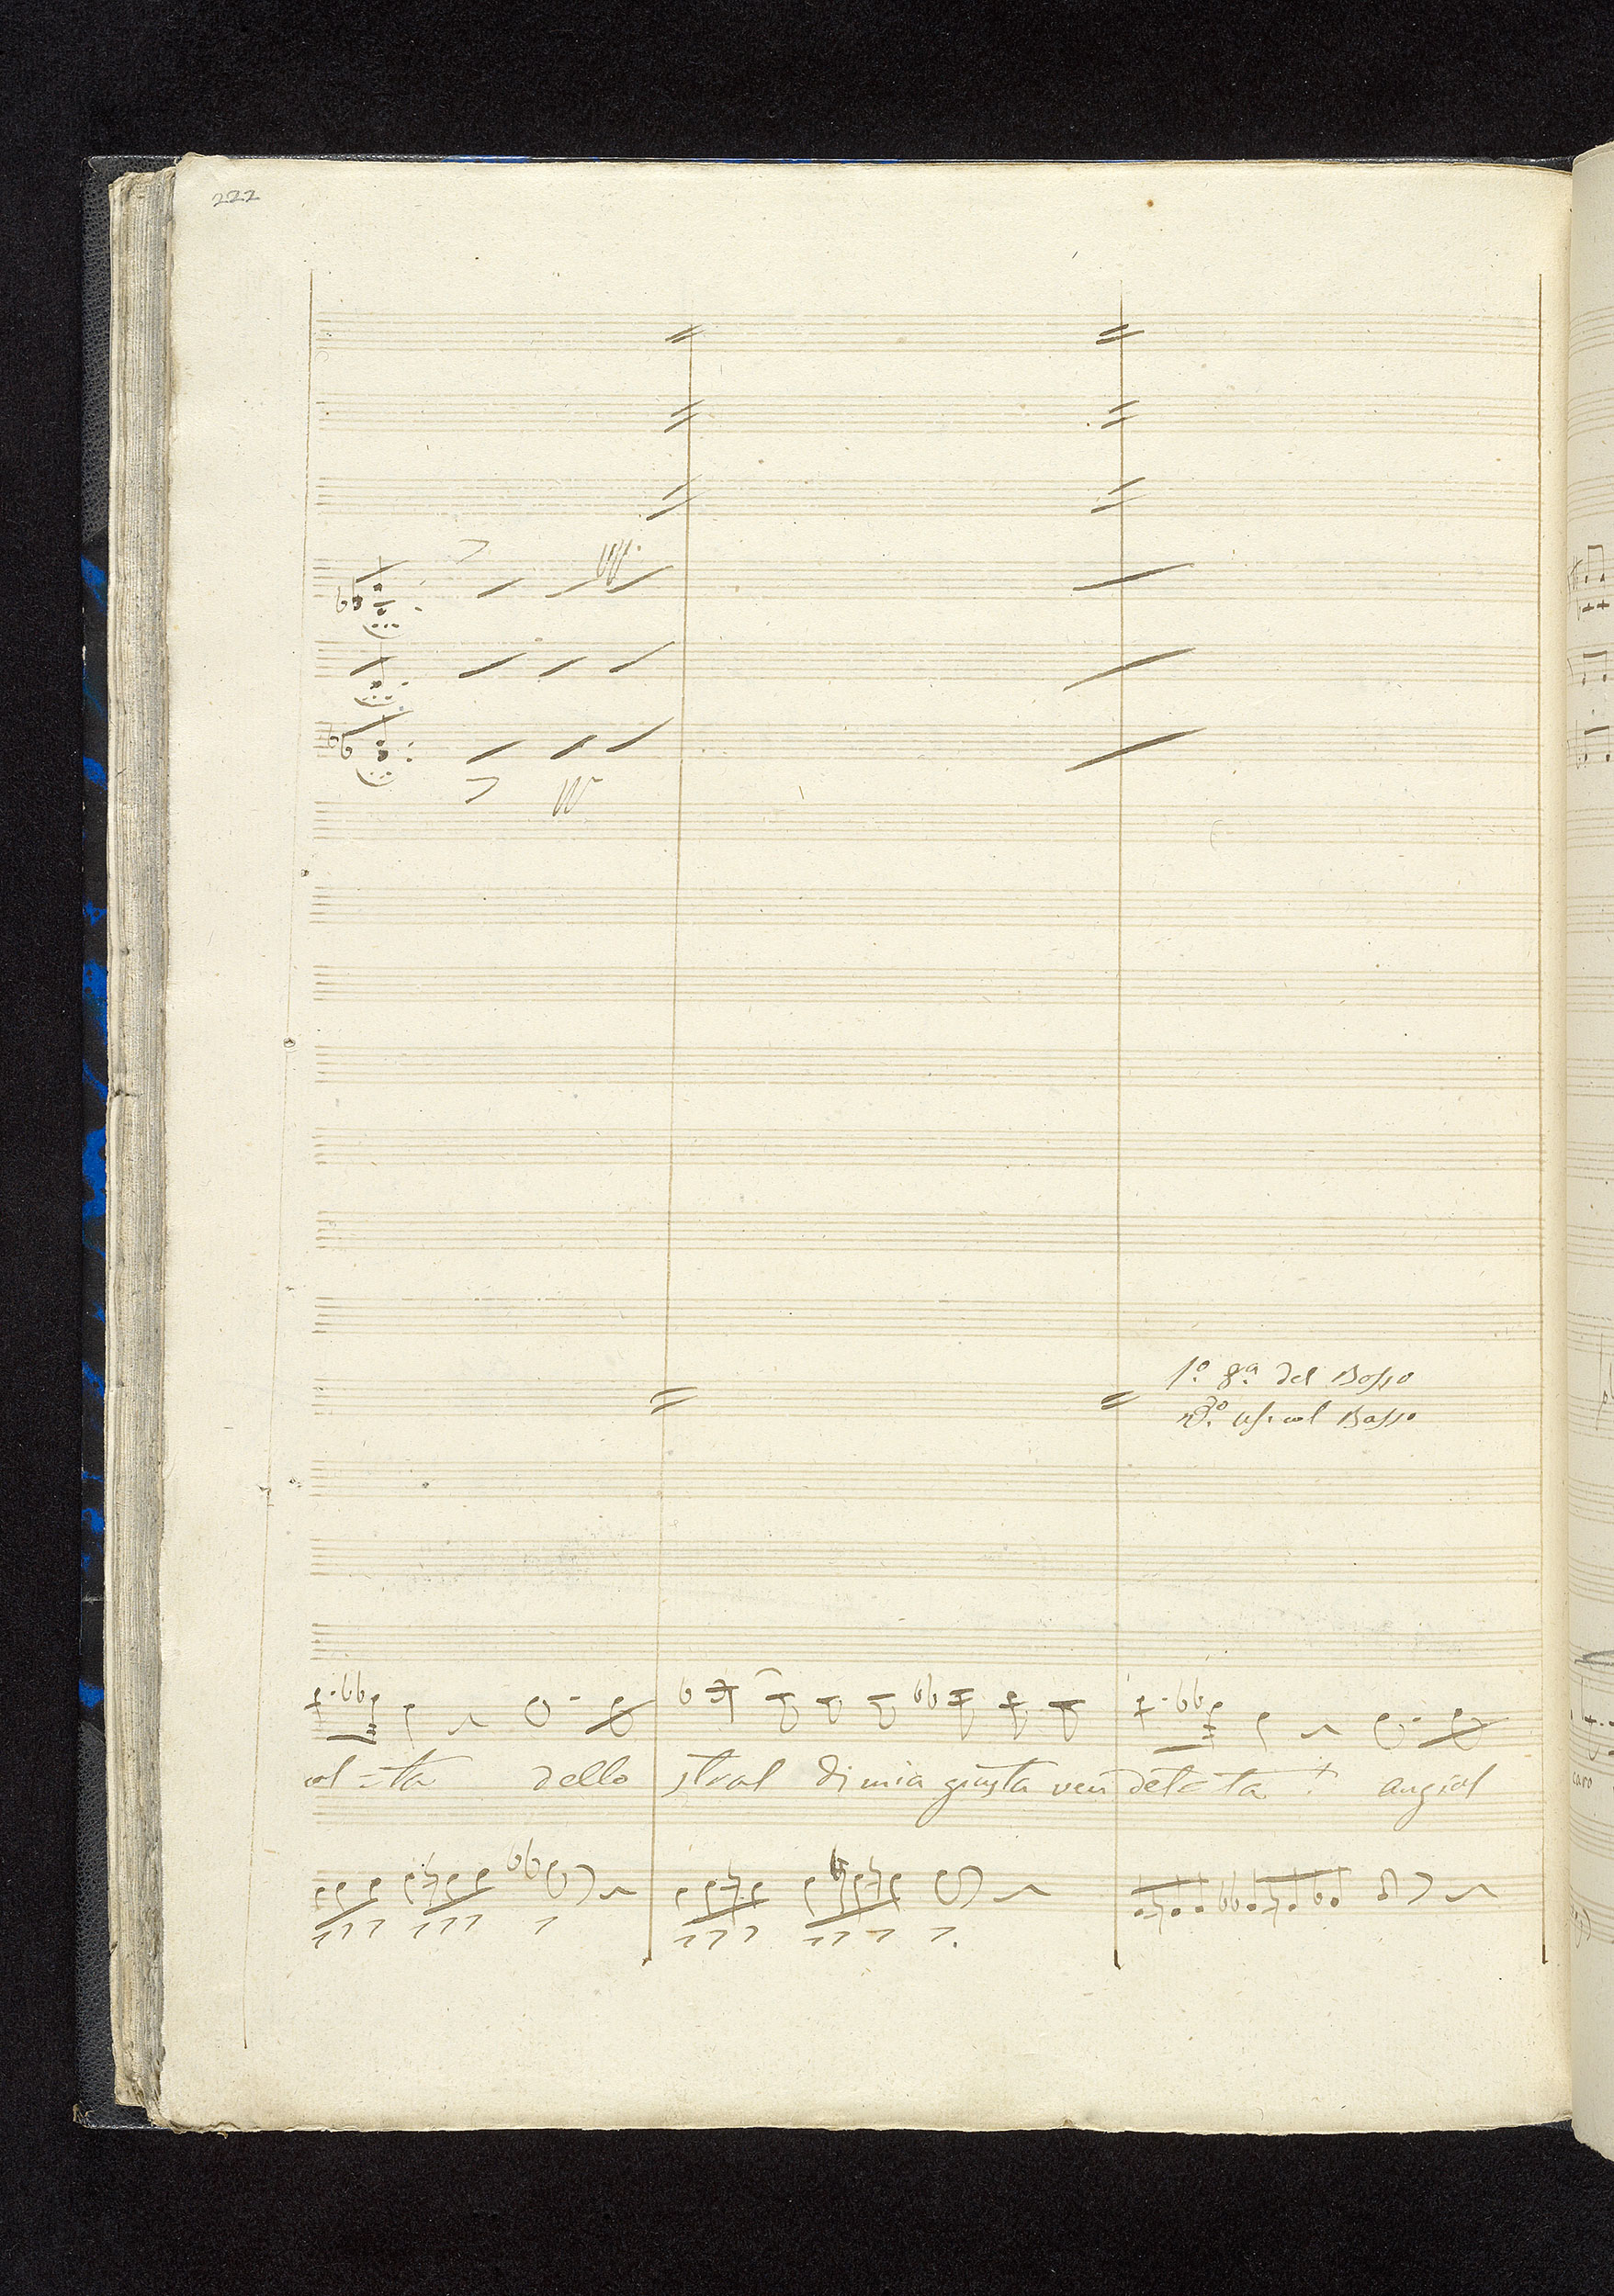 222
1º 8ª del Basso
2º col Basso
col - ta dello stral di mia giusta ven det - ta! angiol
caro